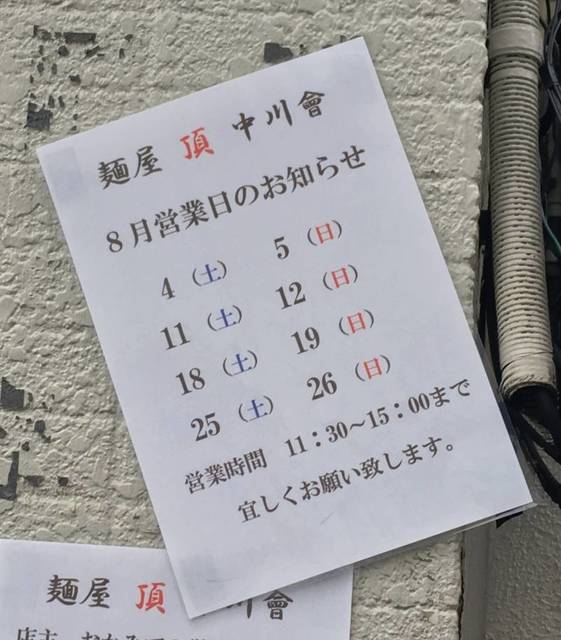 麺屋 頂 中川會
8月営業日のお知らせ
4（土） 5（日）
11（土） 12（日）
18（土） 19（日）
25（土） 26（日）
営業時間 11：30～15：00まで
宜しくお願い致します。
麺屋 頂 川會
店主